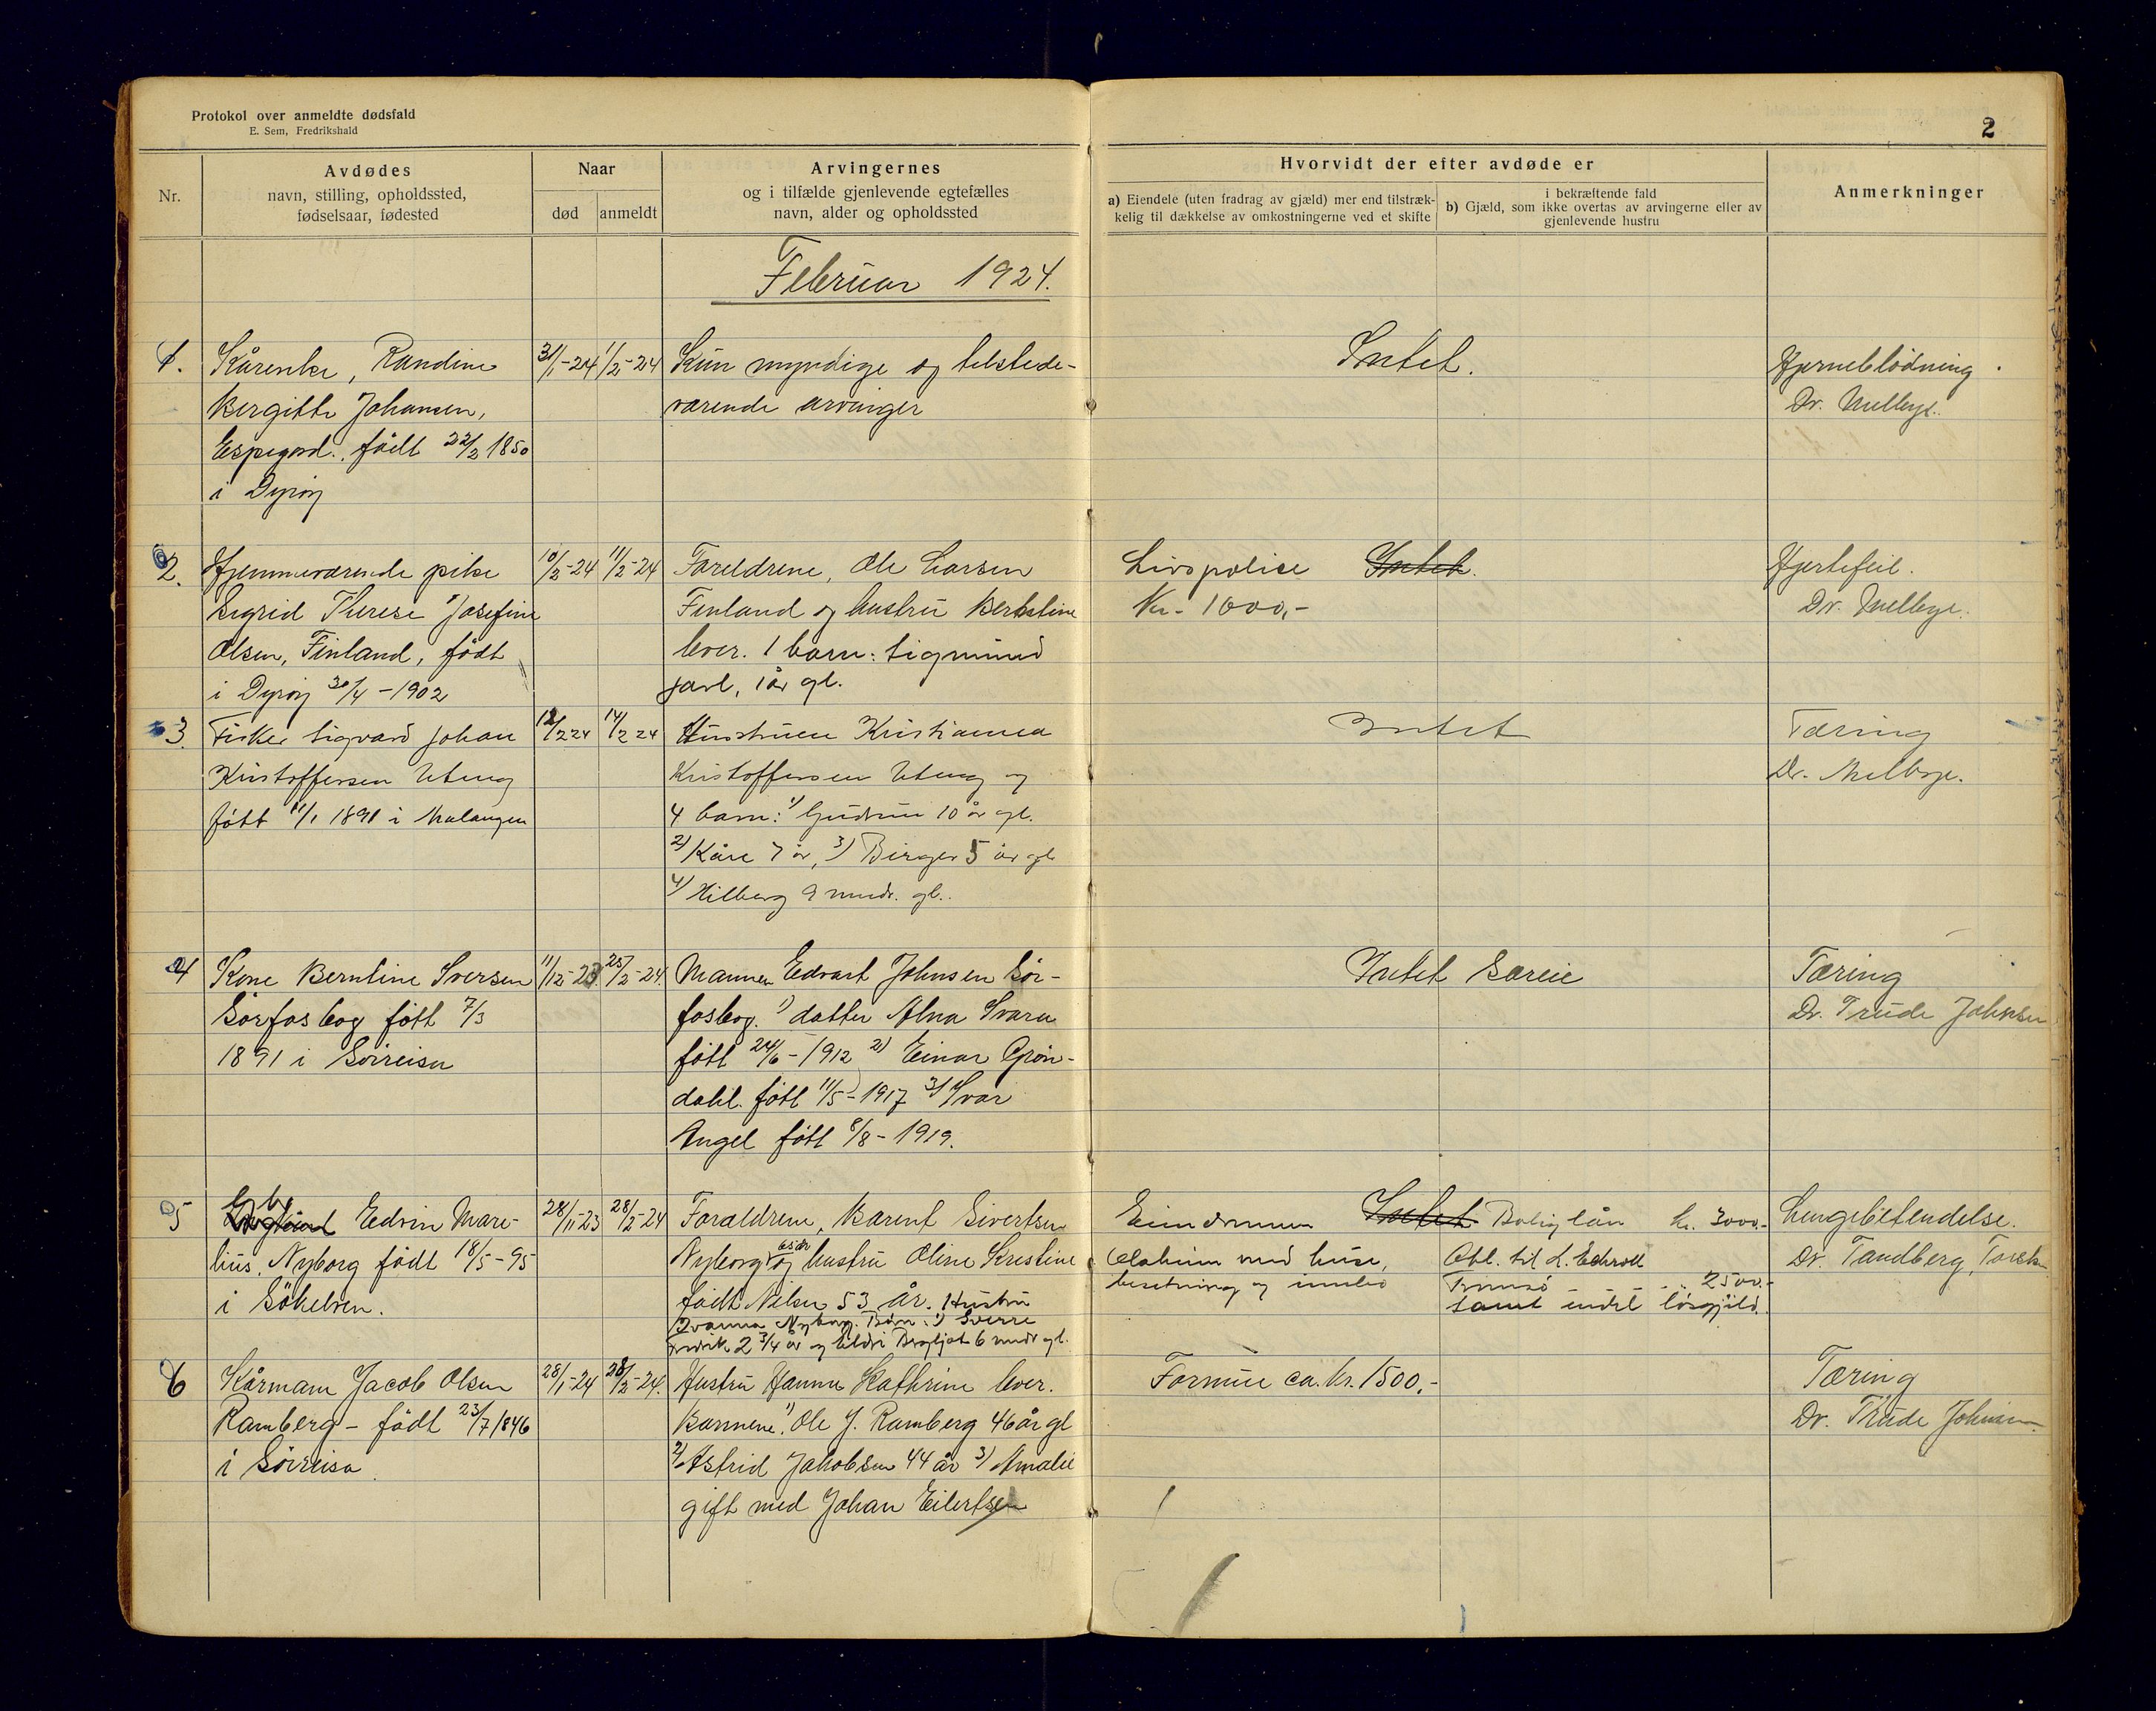 Protokol over anmeldte dødsfald
E. Sem, Fredrikshald
2
Nr.
Avdødes
navn, stilling, opholdssted,
fødselsaar, fødested
Naar
død
anmeldt
Arvingernes
og i tilfælde gjenlevende egtefælles
navn, alder og opholdssted
Hvorvidt der efter avdøde er
a) Eiendele (uten fradrag av gjæld) mer end tilstræk-
kelig til dækkelse av omkostningerne ved et skifte
i bekræftende fald
b) Gjæld, som ikke overtas av arvingerne eller av
gjenlevende hustru
Anmerkninger
Februar 1924.
1.
Kårenke, Randine
Bergitte Johansen,
Espegard. født 22/2 1850
i Dyrøy
31/1-24
1/2-24
Kun myndige og tilstede-
værende arvinger
Intet.
Hjerneblødning.
Dr. Melbye.
2.
Hjemmeværende pike
Sigrid Therese Josefine
Olsen, Finland, født
i Dyrøy 30/4-1902
10/2-24
11/2-24
Foreldrene, Ole Larsen
Finland og hustru Berntine
lever. 1 barn: Sigmund
Jarl, 1 år gl.
Livspolice
Kr. 1000,-
Intet.
Hjertefeil.
Dr. Melbye.
3.
Fisker Sigvard Johan
Kristoffersen Uteng
født 11/1 1891 i Malangen
12/2 24
14/2 24
Hustruen Kristianna
Kristoffersen Uteng og
4 barn: 1) Gudrun 10 år gl.
2) Kåre 7 år, 3) Birger 5 år gl
4) Hilberg 9 mndr. gl.
Intet
Tæring
Dr. Melbye.
4
Kone Berntine Iversen
Sørfosbog født 7/3
1891 i Sørreisa
11/12-23.
25/2-24.
Mannen Edvart Johnsen Sør-
fosbog. 1) datter Alna Ivara
født 24/6-1912 2) Einar Grøn-
dahl. født 11/5-1917 3) Ivar
Angel født 8/8-1919.
Intet særeie
Tæring
Dr. Trude Johnsen
5
Edvin Mare-
lius. Nyborg født 18/5-95
i Gökelven.
28/11-23
28/2-24
Foraldrene, Barent Sivertsen
Nyborg og hustru Oline Kristine
født Nilsen 53 år. Hustru
Ivanna Nyborg. Børn: 1) Sverre
Fredrik 2 3/4 år og Eldri Bergljot 6 mndr gl.
Eiendommen
Olaheim med huse,
besetning og innbo
Intet
Boliglån kr. 3000.-
Obl. til L. Echroll
Tromsø - - 2500.-
samt endel løsgjeld.
Lungebetendelse.
Dr. Tandberg, Torsken
6
Kårmann Jacob Olsen
Ramberg - født 23/7 1846
i Sørreisa
28/1-24
28/2-24.
Hustru Hanna Kathrine lever.
Barnene: 1) Ole J. Ramberg 46 år gl
2) Astrid Jakobsen 44 år 3) Amalie
gift med Johan Eilertsen
Formue ca. kr. 1500,-
Tæring
Dr. Trude Johnsen.